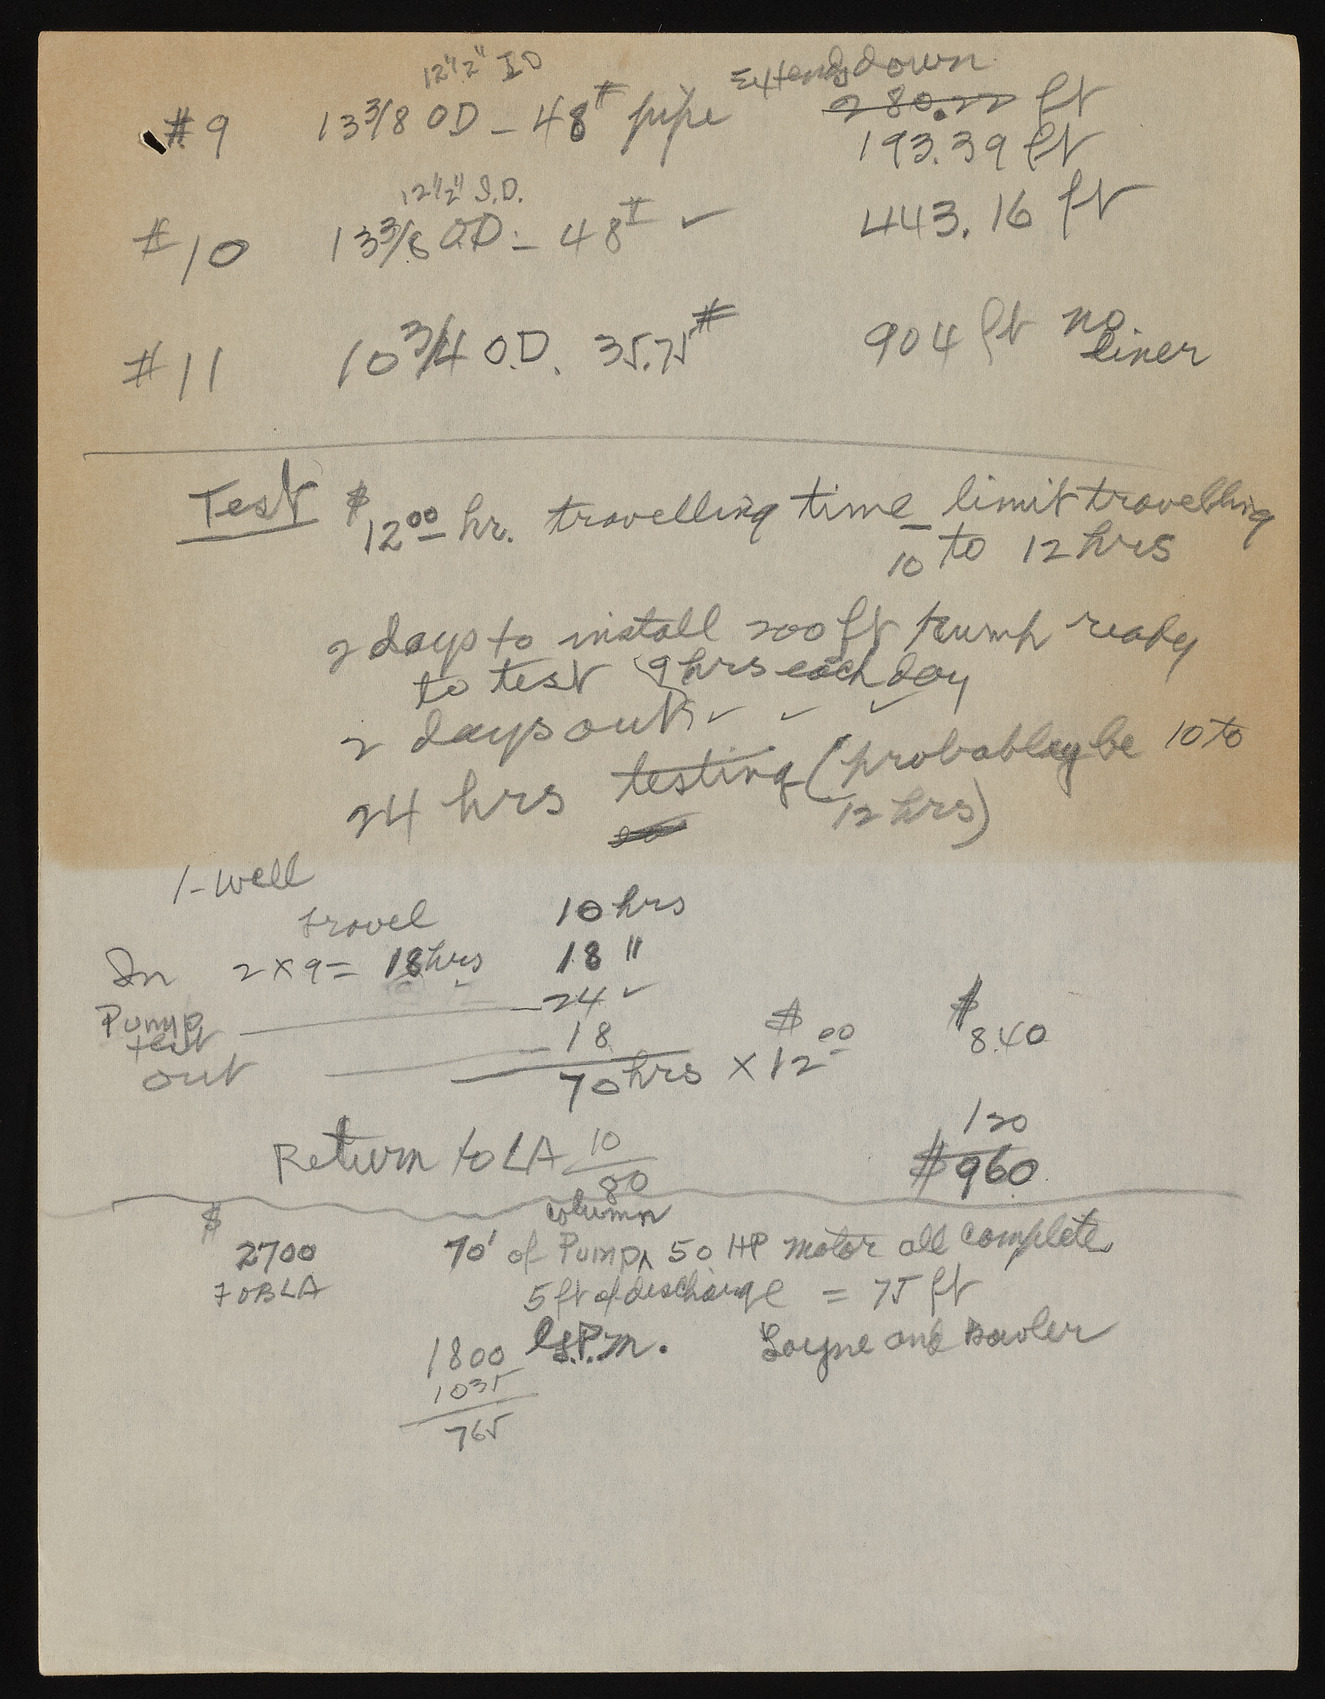 12 1/2" ID
#9 13 3/8 OD - 48# pipe Extends down 280.22 ft
193.39 ft
12 1/2" I.D.
#10 13 3/8 O.D. - 48# ✓ 443.16 ft
#11 10 3/4 O.D. 35.75# 904 ft no liner
Test $12.00 hr. travelling time - limit travelling
10 to 12 hrs
2 days to install 200 ft pump ready
to test (9 hrs each day
2 days out ✓ ✓ ✓
24 hrs testing (probabley be 10 to
12 hrs)
1 - well
travel 10 hrs
In 2 x 9 = 18 hrs 18 "
Pump test 24 ✓
out 18
70 hrs x $12.00 $840
Return to LA 10 120
80 $960
column
$2700 70' of Pump ^ 50 HP motor all complete
FOB LA 5 ft of discharge = 75 ft
1800 G.P.M. Layne and Bowler
1035
765